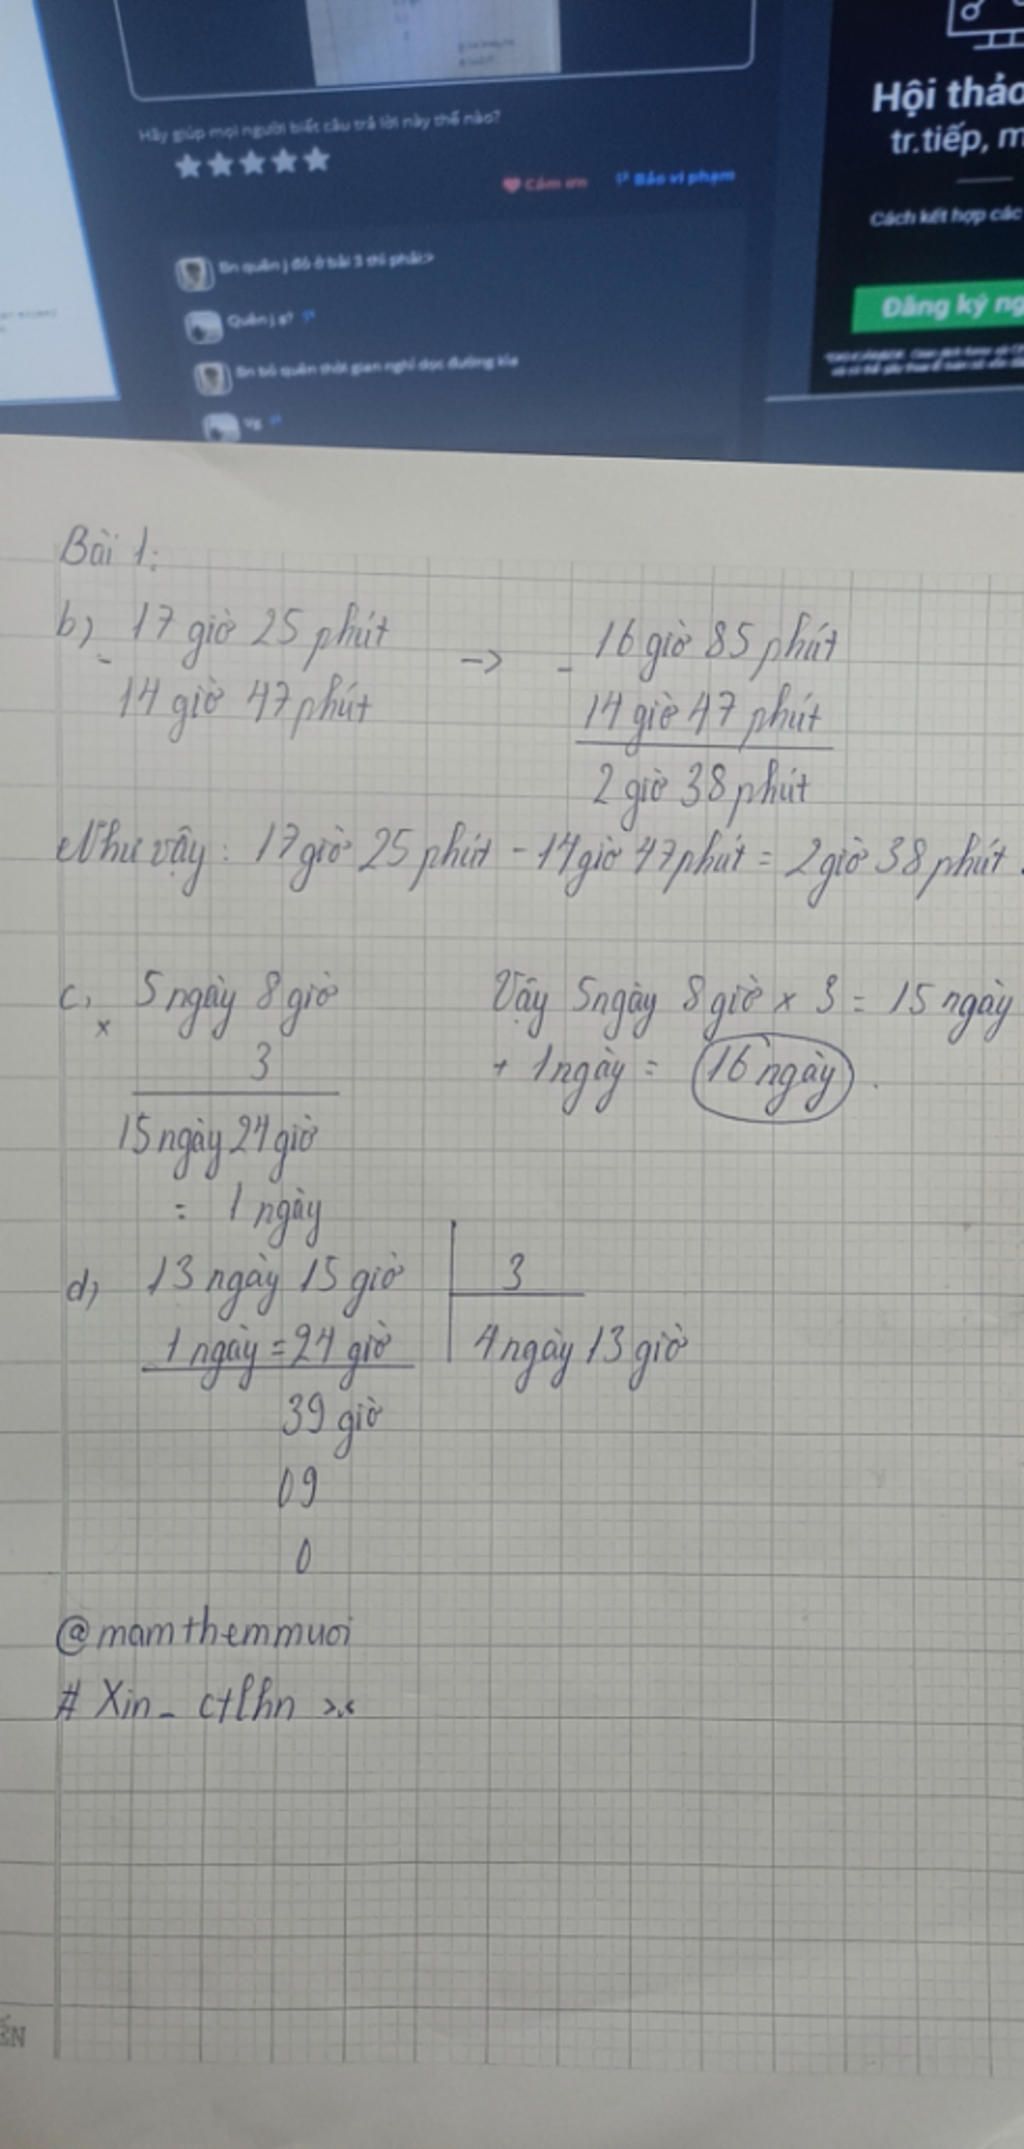 Hãy giúp mọi người biết câu trả lời này thế nào?
Cảm ơn
Báo vi phạm
Bn quên j đó ở bài 3 thì phải:>
Quên j ạ?
Bn bỏ quên thời gian nghỉ dọc đường kìa
Hội thảo
tr.tiếp, m
Cách kết hợp các
Đăng ký ng
Bài 1:
b) 17 giờ 25 phút -> 16 giờ 85 phút
- 14 giờ 47 phút - 14 giờ 47 phút
2 giờ 38 phút
Như vậy: 17 giờ 25 phút - 14 giờ 47 phút = 2 giờ 38 phút.
c, 5 ngày 8 giờ Vậy 5 ngày 8 giờ x 3 = 15 ngày
x 3 + 1 ngày = 16 ngày.
15 ngày 24 giờ
= 1 ngày
d) 13 ngày 15 giờ 3
1 ngày = 24 giờ 4 ngày 13 giờ
39 giờ
09
0
@mamthemmuoi
# Xin_ctlhn >.<
ẾN